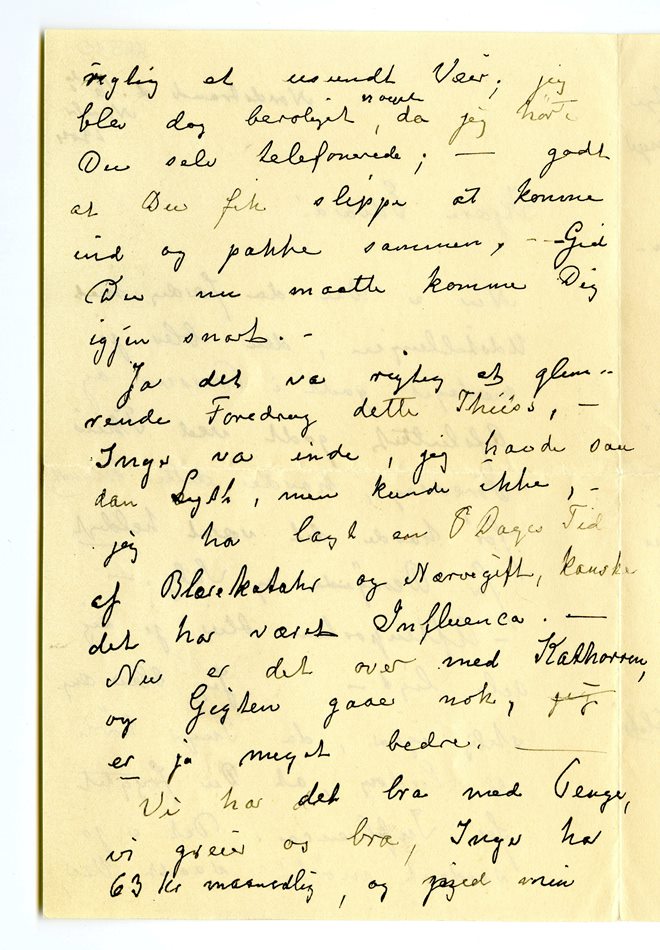 rigtig et usundt Veir; jeg
blev dog beroliget noget, da jeg hørte
Du selv telefonerede; — godt
at Du fik slippe at komme
ind og pakke sammen, — Gid
Du nu maatte komme Dig
igjen snart. –
Ja det va rigtig et glim-
rende Foredrag dette Thiiss, –
Inger va inde, jeg havde saa
dan Lyst, men kunde ikke, –
jeg ha lagt en 8 Dages Tid
af Blærekatahr og Nærvegift, kanske
det har været Influenca. —
Nu er det over med Katharren,
og Gigten gaar nok, jeg
er ja meget bedre. —
Vi har det bra med Penge,
vi greier os bra, Inger ha
63 kr maanedlig, og med min